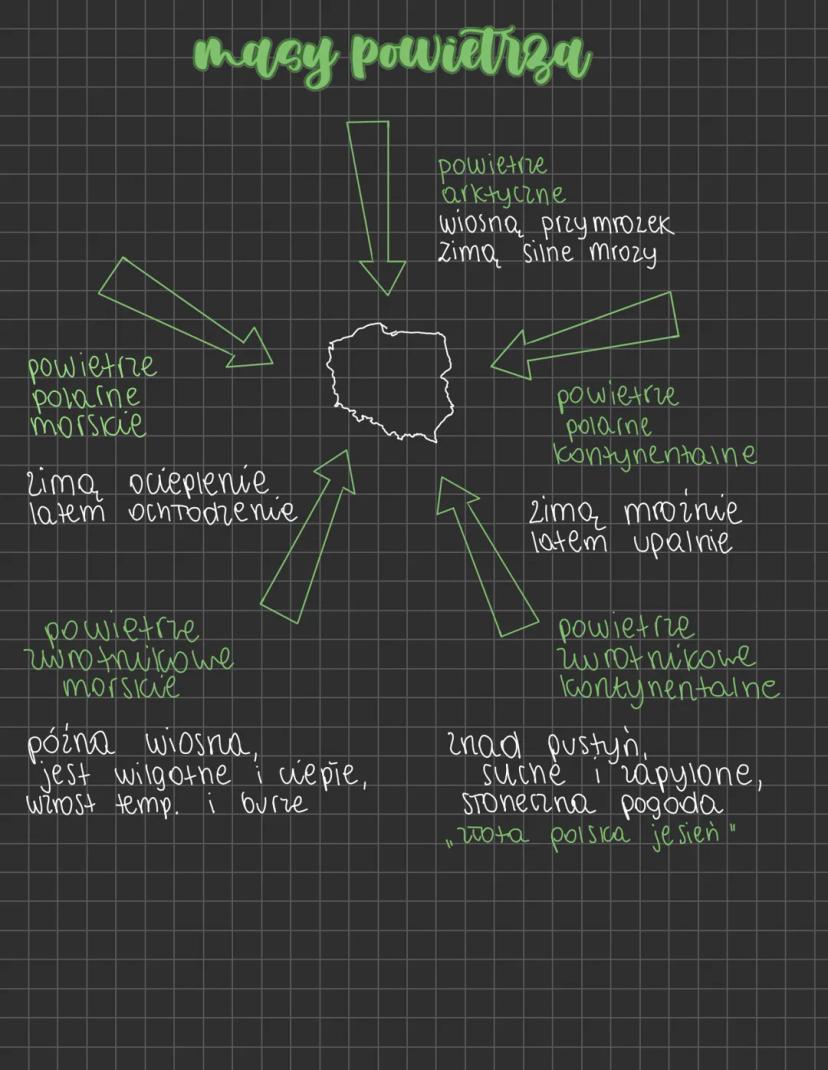 masy powietrza
powietrze
arktyczne
wiosną przymrozek
zimą silne mrozy
powietrze
polarne
morskie
zimą ocieplenie
latem ochłodzenie
powietrze
polarne
kontynentalne
zimą mroźnie
latem upalnie
powietrze
zwrotnikowe
morskie
późna wiosna,
jest wilgotne i ciepłe,
wzrost temp. i burze
powietrze
zwrotnikowe
kontynentalne
znad pustyń,
suche i zapylone,
słoneczna pogoda
„złota polska jesień"